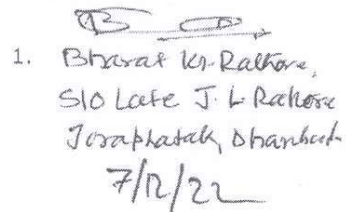 1. Bharat Kr. Rathore,
S/o Late J. L Rathore
Joraphatak, Dhanbad
7/12/22